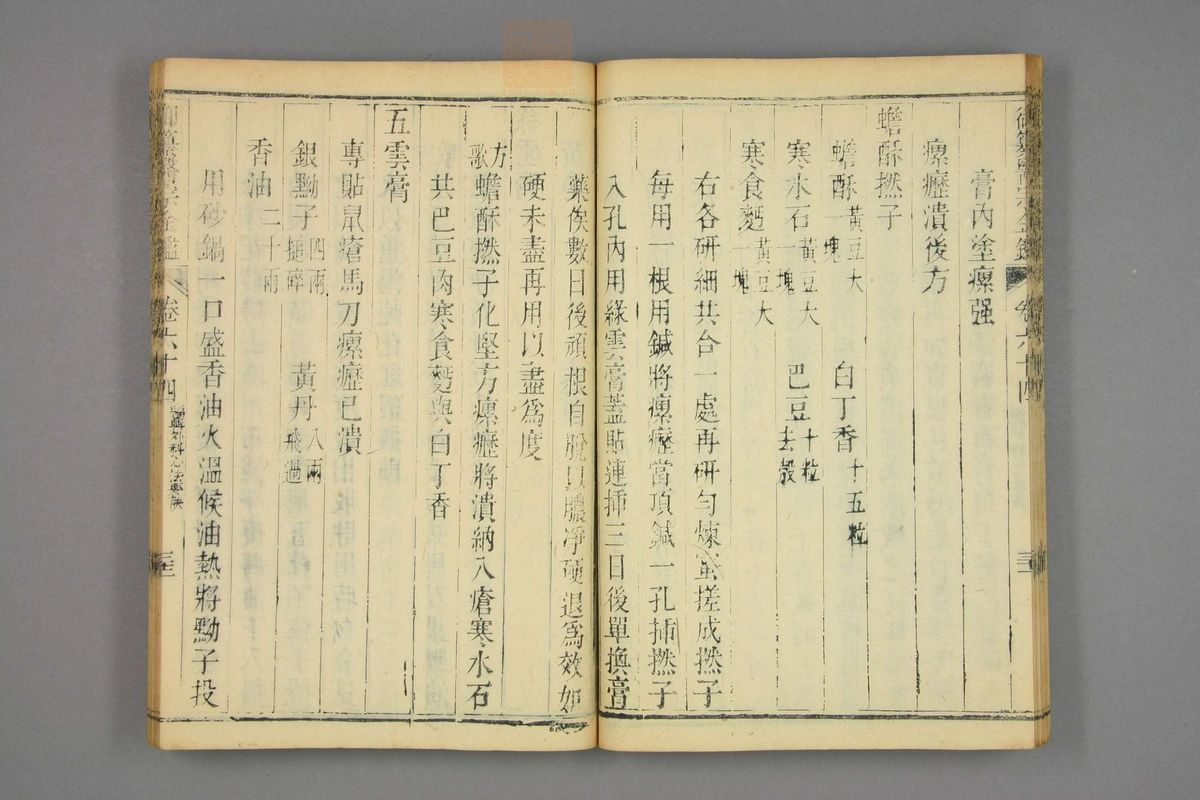 膏內塗瘰强
瘰癧潰後方
蟾酥撚子
蟾酥一塊黃豆大 白丁香十五粒
寒水石黃豆大一塊 巴豆十粒去殼
寒食麫黃豆大一塊
右各研細共合一處再研勻煉蜜搓成撚子
每用一根用鍼將瘰癧當頂鍼一孔揷撚子
入孔內用綠雲膏蓋貼連揷三日後單換膏
藥俟數日後頑根自脫以膿淨硬退爲效如
硬未盡再用以盡爲度
方歌蟾酥撚子化堅方瘰癧將潰納入瘡寒水石
共巴豆肉寒食麫與白丁香
五雲膏
專貼鼠瘡馬刀瘰癧已潰
銀黝子四兩搥碎 黃丹八兩飛過
香油二十兩
用砂鍋一口盛香油火溫候油熱將黝子投
御纂醫宗金鑑 卷六十四
御纂醫宗金鑑 卷六十四 編輯外科心法要訣